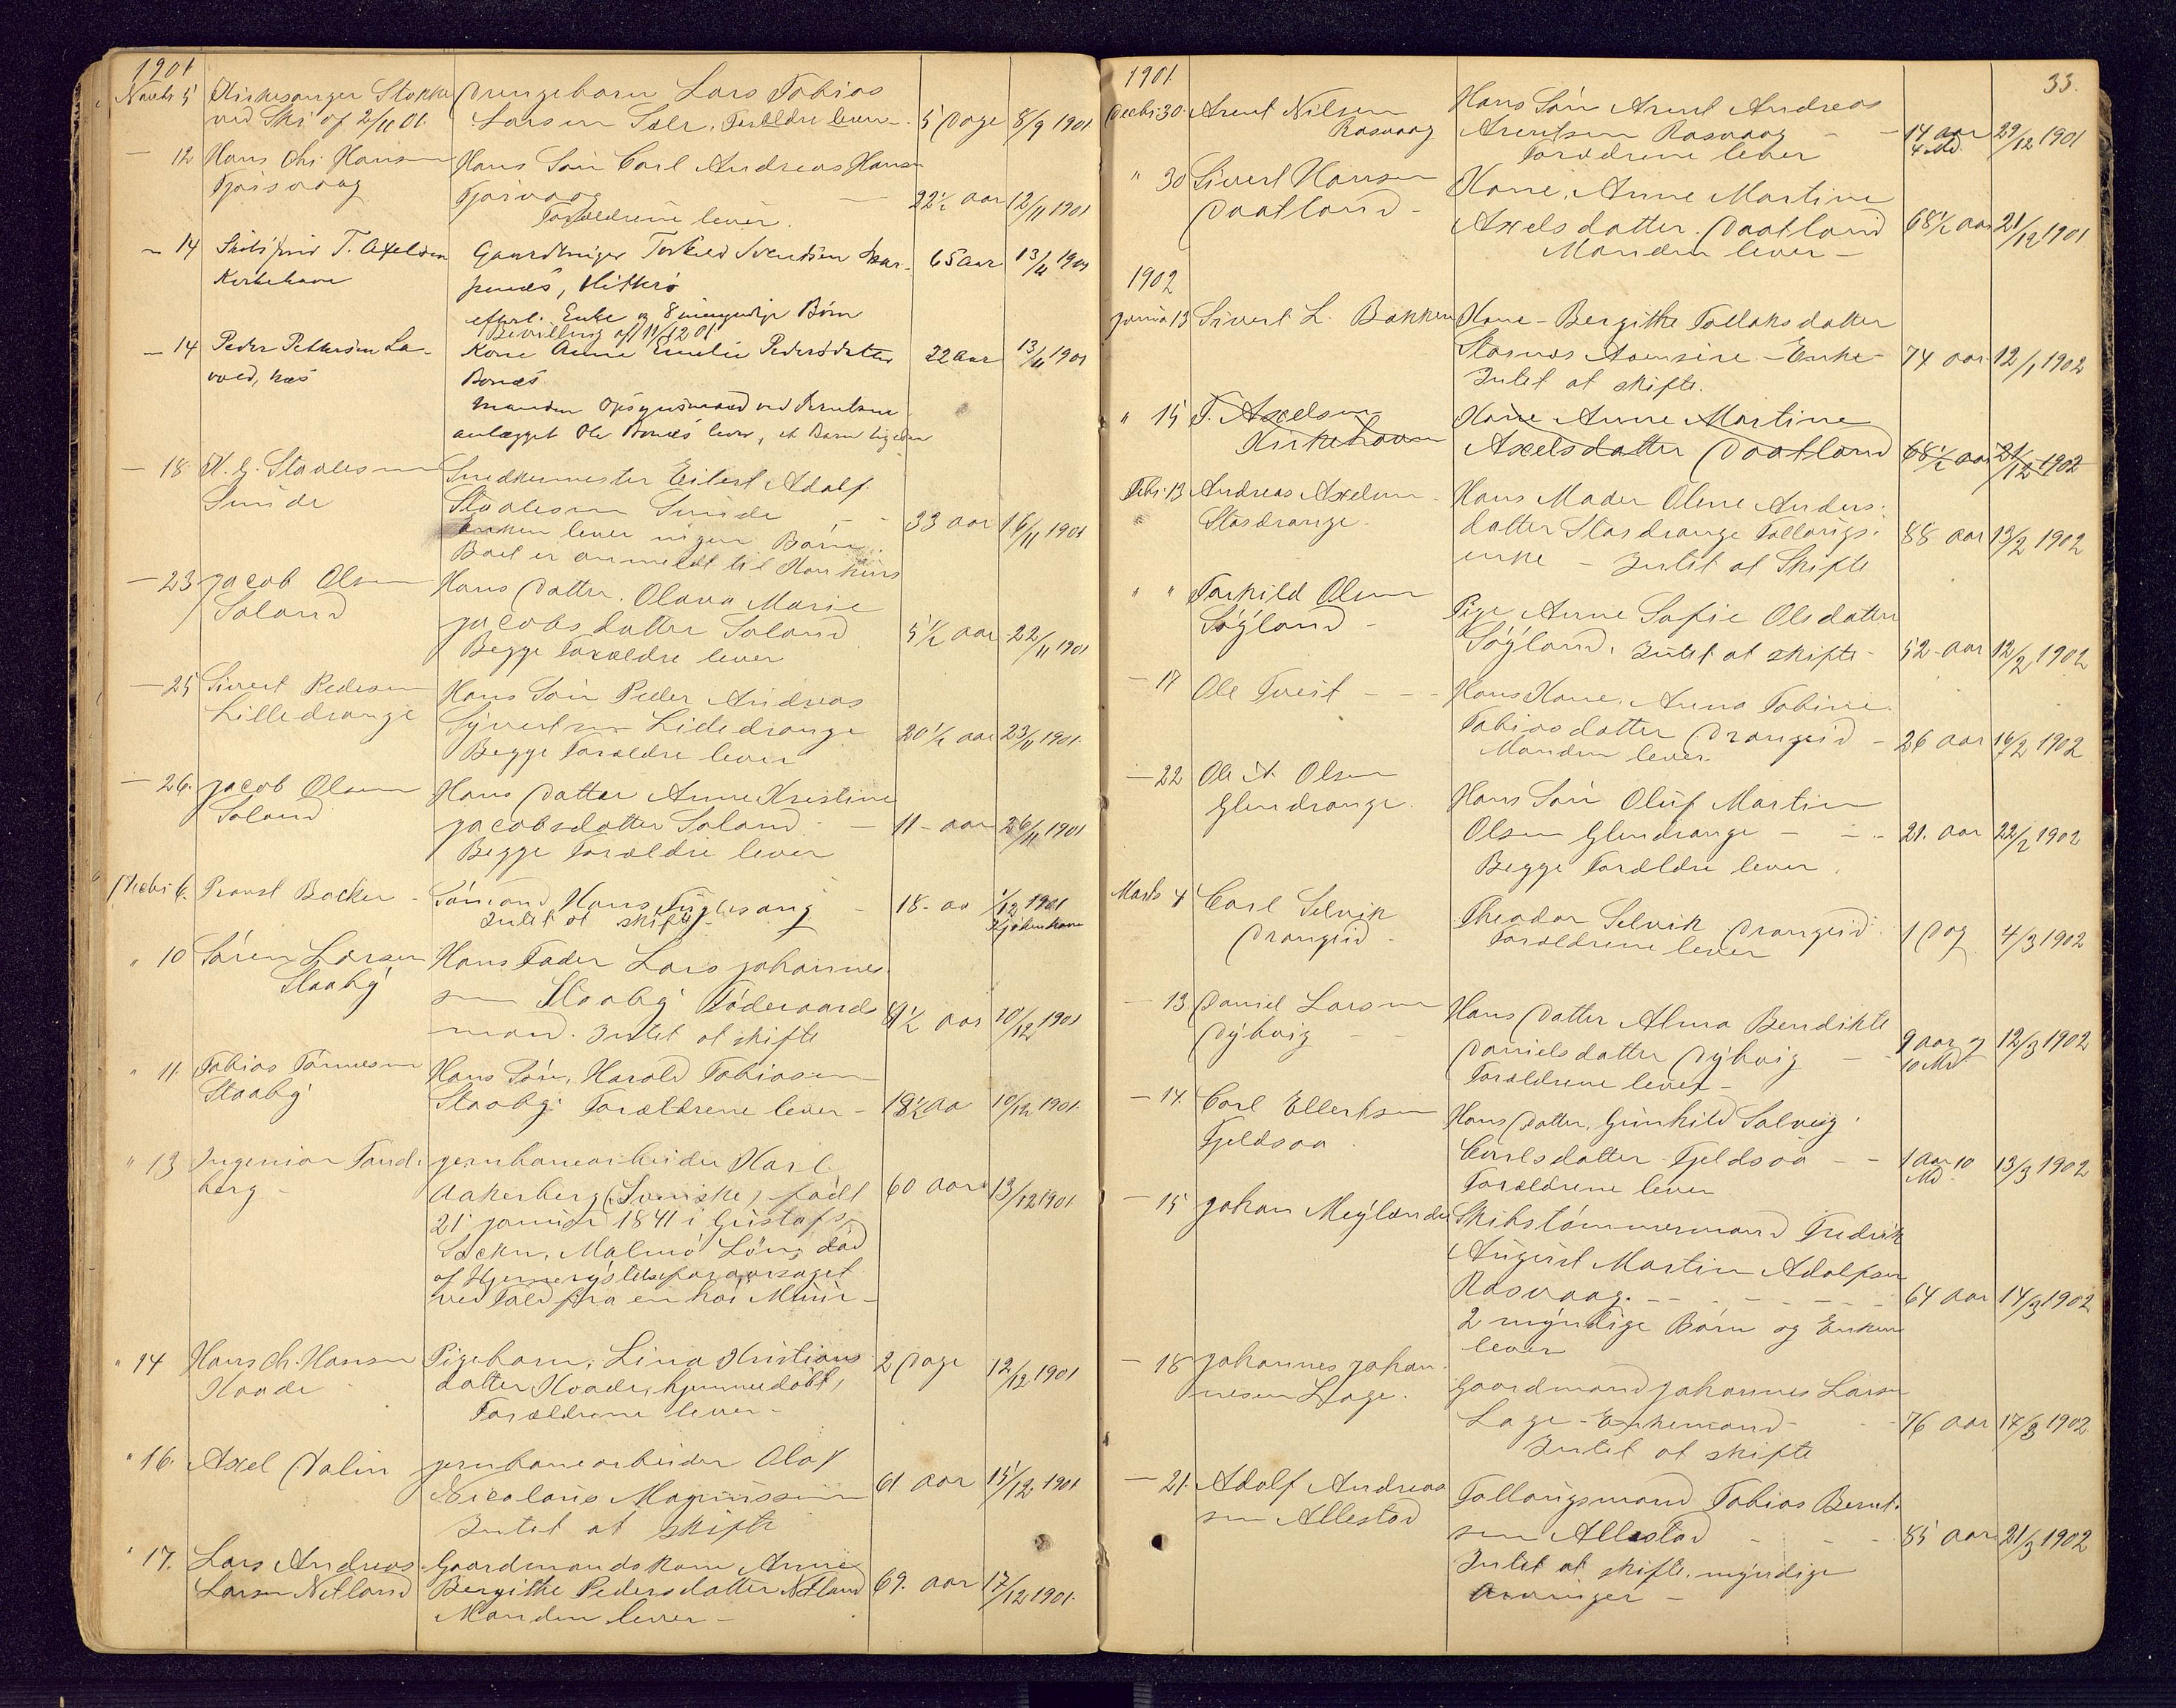 1901
Novbr 5 Kirkesanger Stokke Drengebarn Lars Tobias
ved Ski af 2/11 01. Larsen Sæle, Forældre lever. 5 Dage 8/9 1901
— 12 Hans Chr. Hansen Hans Søn Carl Andreas Hansen
Fjosvaag Fjosvaag 22½ aar 12/11 1901
Forældrene lever.
— 14 T. Axelsen Gaardbruger Torkild Svendsen
Kirkehavn Hitterø 65 aar 13/11 1901
efterl. Enke og 8 umyndige Børn
Bevilling af 11/12 01
— 14 Peder Pettersen La- Kone Anne Emelie Pedersdatter 22 aar 13/11 1901
vold, Næs Bonæs
Manden Opsynsmand ved
anlægget Ole Bonæs lever, et Barn
— 18 H. G. Staalesen Snedkermester Eilert Adolf
Sunde Staalesen Sunde — 33 aar 16/11 1901
Enken lever ingen Børn.
Boet er anmeldt til Konkurs
— 23 Jacob Olsen Hans Datter. Olava Marie
Soland Jacobsdatter Soland 5½ aar 22/11 1901
Begge Forældre lever
— 25 Sivert Pedersen Hans Søn Peder Andreas
Lilledrange Syvertsen Lilledrange 20½ aar 23/11 1901.
Begge Forældre lever
— 26. Jacob Olsen Hans Datter Anne Kristine
Soland Jacobsdatter Soland — 11 - aar 26/11 1901
Begge Forældre lever
Decbr 6. Provst Backer - Sømand Hans Fuglesang - 18 - aa 1/12 1901
Intet at skifte - Kjøbenhavn
" 10 Søren Larsen Hans Fader Lars Johannes-
Staaby sen Staaby Føderaads
mand. Intet at skifte 81½ aar 10/12 1901
" 11 Tobias Tønnesen Hans Søn, Harald Tobiasen
Staaby Staaby. Forældrene lever - 18½ aa 10/12 1901.
" 13 Ingeniør Tand- Jernbanearbeider Karl
berg - Aakerberg (Svenske) født 60 aar 13/12 1901
21 Januar 1841 i Gustafs
Sockn, Malmö Län, død
af Hjernerystelse foraarsaget
ved Fald fra en høi Muur -
" 14 Hans Ch. Hansen Pigebarn, Lina Kristians 2 Dage 12/12 1901
Haade datter Haade, hjemmedøbt,
Forældrene lever -
" 16. Axel Dalin Jernbanearbeider Olaf
Nicolaus Magnussen 61 aar 15/12 1901
Intet at skifte
" 17. Lars Andreas Gaardmandskone Anne
Larsen Netland Bergithe Pedersdatter Netland 69. aar 17/12 1901.
Manden lever -
33.
1901.
Decbr 30. Arent Nilsen Hans Søn Arent Andreas
Rasvaag Arentsen Rasvaag - - 14 aar 29/12 1901
Forældrene lever 4 Md.
" 30 Sivert Hansen Kone, Anne Martine
Daatland - Axelsdatter. Daatland 68½ aar 21/12 1901
Manden lever -
1902
Januar 13 Sivert L. Bakken Kone - Bergithe Tollaksdatter
Enke - 74 aar 12/1 1902
Intet at skifte.
" 15 T. Axelsen Kone Anne Martine
Kirkehavn Axelsdatter Daatland 68½ aar 21/12 1902
Febr 13 Andreas Axelsen Hans Moder Olene Anders-
Stosdrange datter Stosdrange Follaugs- 88 aar 13/2 1902
enke - Intet at Skifte
" " Torkild Olsen Pige Anne Sofie Olsdatter
Søyland - Søyland. Intet at skifte - 52 - aar 12/2 1902
— 17 Ole Tveit - - Hans Kone, Anna Tobine
Tobiasdatter Drangeid - 26 aar 16/2 1902
Manden lever.
— 22 Ole A. Olsen Hans Søn Oluf Martin
Glendrange. Olsen Glendrange - - - 21. aar 22/2 1902
Begge Forældre lever.
Marts 4 Carl Selvik Theodor Selvik Drangeid. 1 Dag 4/3 1902
Drangeid - Forældrene lever
— 13 Daniel Larsen Hans Datter Alma Bendikte
Dybvig - - Danielsdatter Dybvig - 9 aar og 12/3 1902
Forældrene lever - 10 Md
— 14. Carl Ellertsen Hans Datter, Gunhild Solveig
Fjeldsaa Carlsdatter Fjeldsaa - - 1 Aar 10 13/3 1902
Forældrene lever Md.
— 15 Johan Meylænder Skibstømmermand Fredrik
August Martin Adolfsen
Rasvaag. - - - - - 64 aar 14/3 1902
2 myndige Børn og Enken
lever
— 18 Johannes Johan- Gaardmand Johannes Larsen
nesen Lage. Lage - Enkemand - - 76 aar 17/3 1902.
Intet at skifte
— 21. Adolf Andreas Follaugsmand Tobias Bernt-
sen Allestad sen Allestad - - - 85 aar 21/3 1902
Intet at skifte. myndige
Arvinger -